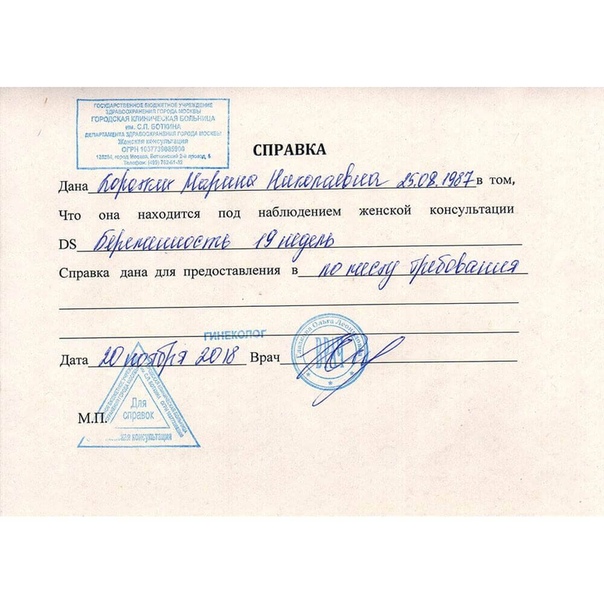 ГОСУДАРСТВЕННОЕ БЮДЖЕТНОЕ УЧРЕЖДЕНИЕ
ЗДРАВООХРАНЕНИЯ ГОРОДА МОСКВЫ
ГОРОДСКАЯ КЛИНИЧЕСКАЯ БОЛЬНИЦА
им. С.П. БОТКИНА
ДЕПАРТАМЕНТА ЗДРАВООХРАНЕНИЯ ГОРОДА МОСКВЫ
Женская консультация
ОГРН
город Москва, Боткинский 2-й проезд, 5
Телефон:
СПРАВКА
Дана Марина Николаевна 25.08.1987 в том,
Что она находится под наблюдением женской консультации
DS Беременность 19 недель
Справка дана для предоставления в по месту требования
ГИНЕКОЛОГ
Дата 20 ноября 2018 Врач
Ольга
Для
справок
М.П.
консультация